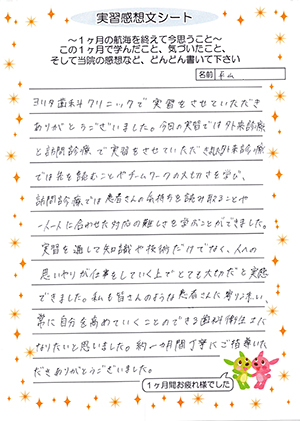 実習感想文シート
～1ヶ月の航海を終えて今思うこと～
この1ヶ月で学んだこと、気づいたこと、
そして当院の感想など、どんどん書いて下さい
名前
ヨリタ歯科クリニックで実習をさせていただき
ありがとうございました。今回の実習では外来診療
と訪問診療で実習をさせていただき外来診療
では先を読むことやチームワークの大切さを学び、
訪問診療では患者さんの気持ちを読み取ることや
一人一人に合わせた対応の難しさを学ぶことができました。
実習を通して知識や技術だけでなく、人への
思いやりが仕事をしていく上でとても大切だと実感
できました。私も皆さんのような患者さんに寄りそい、
常に自分を高めていくことのできる歯科衛生士に
なりたいと思いました。約一カ月間丁寧にご指導いた
だきありがとうございました。
1ヶ月間お疲れ様でした